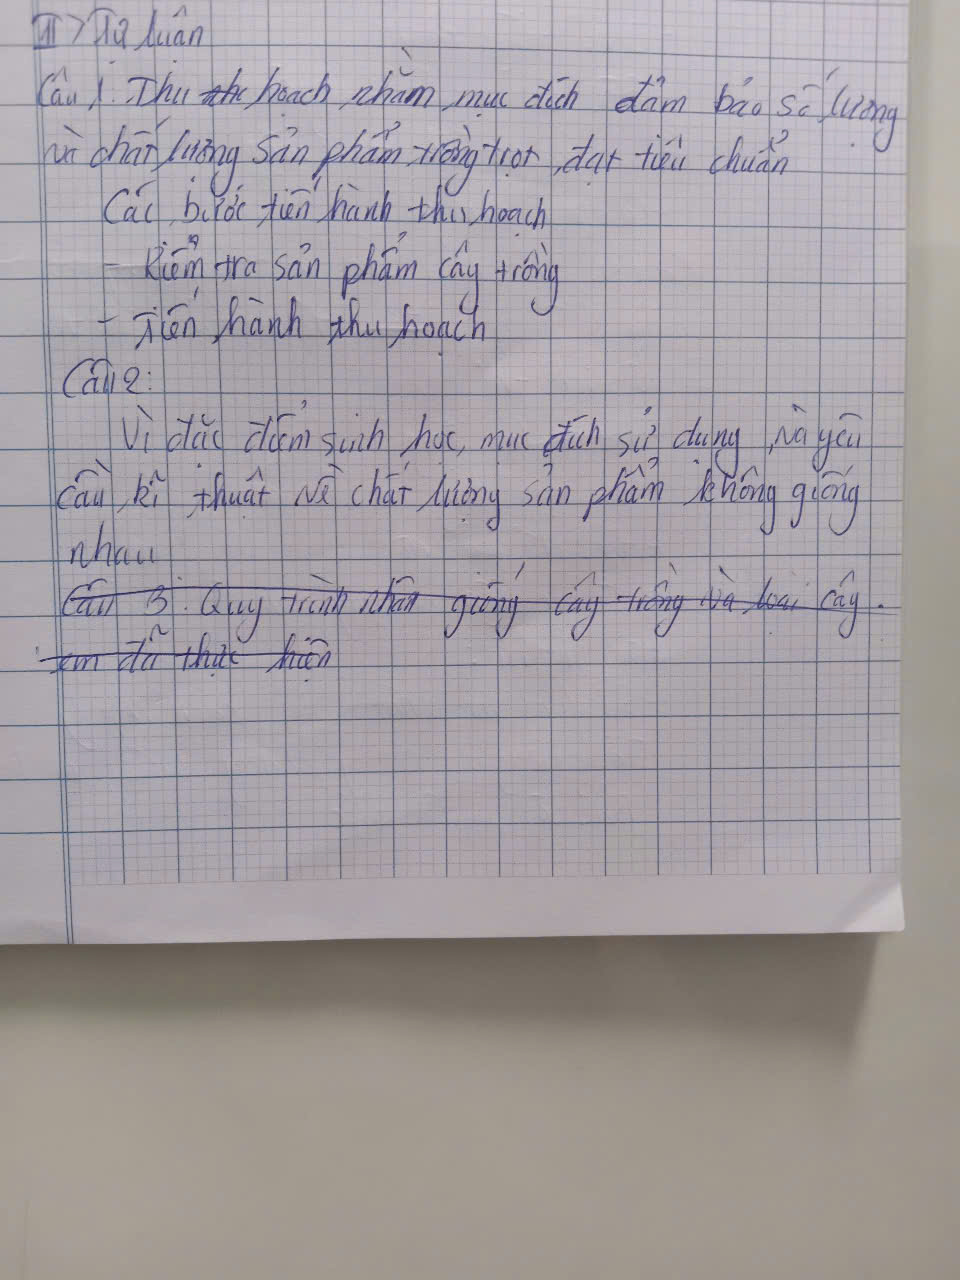 II> Tự luận
Câu 1: Thu hoạch nhằm mục đích đảm bảo số lượng
và chất lượng sản phẩm trồng trọt, đạt tiêu chuẩn
Các bước tiến hành thu hoạch
- Kiểm tra sản phẩm cây trồng
- Tiến hành thu hoạch
Câu 2:
Vì đặc điểm sinh học, mục đích sử dụng, và yêu
cầu kĩ thuật về chất lượng sản phẩm không giống
nhau
Câu 3: Quy trình nhân giống cây trồng và loại cây
em đã thực hiện